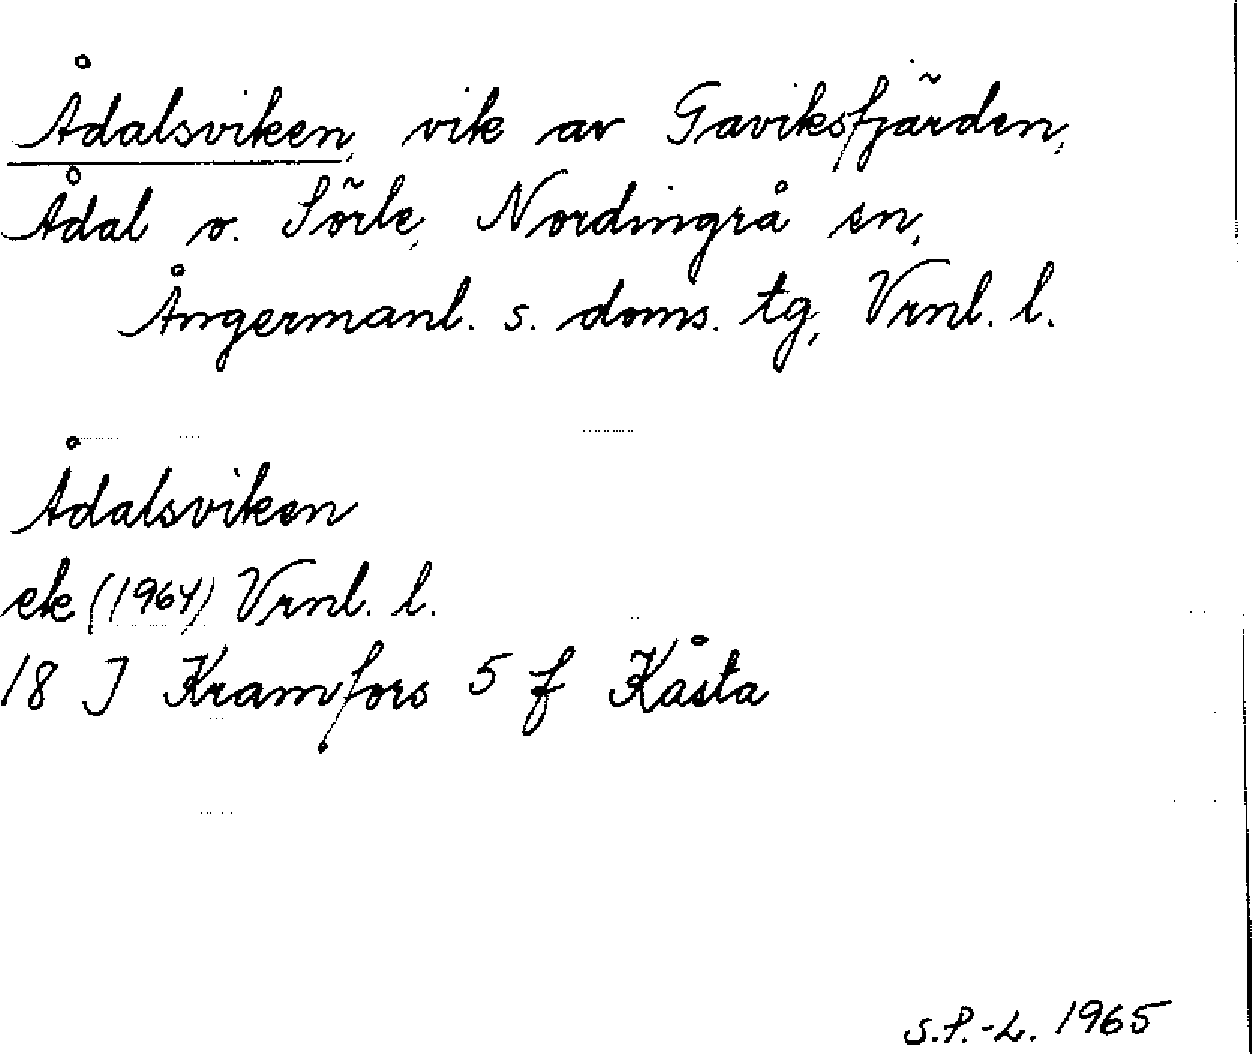 Ådalsviken, vik av Gaviksfjärden,
Ådal o. Sörle, Nordingrå sn,
Ångermanl. s. doms. tg, Vrnl. l.
Ådalsviken
ek (1964) Vrnl. l.
18 J Kramfors 5 f Kåsta
S.P.-L. 1965